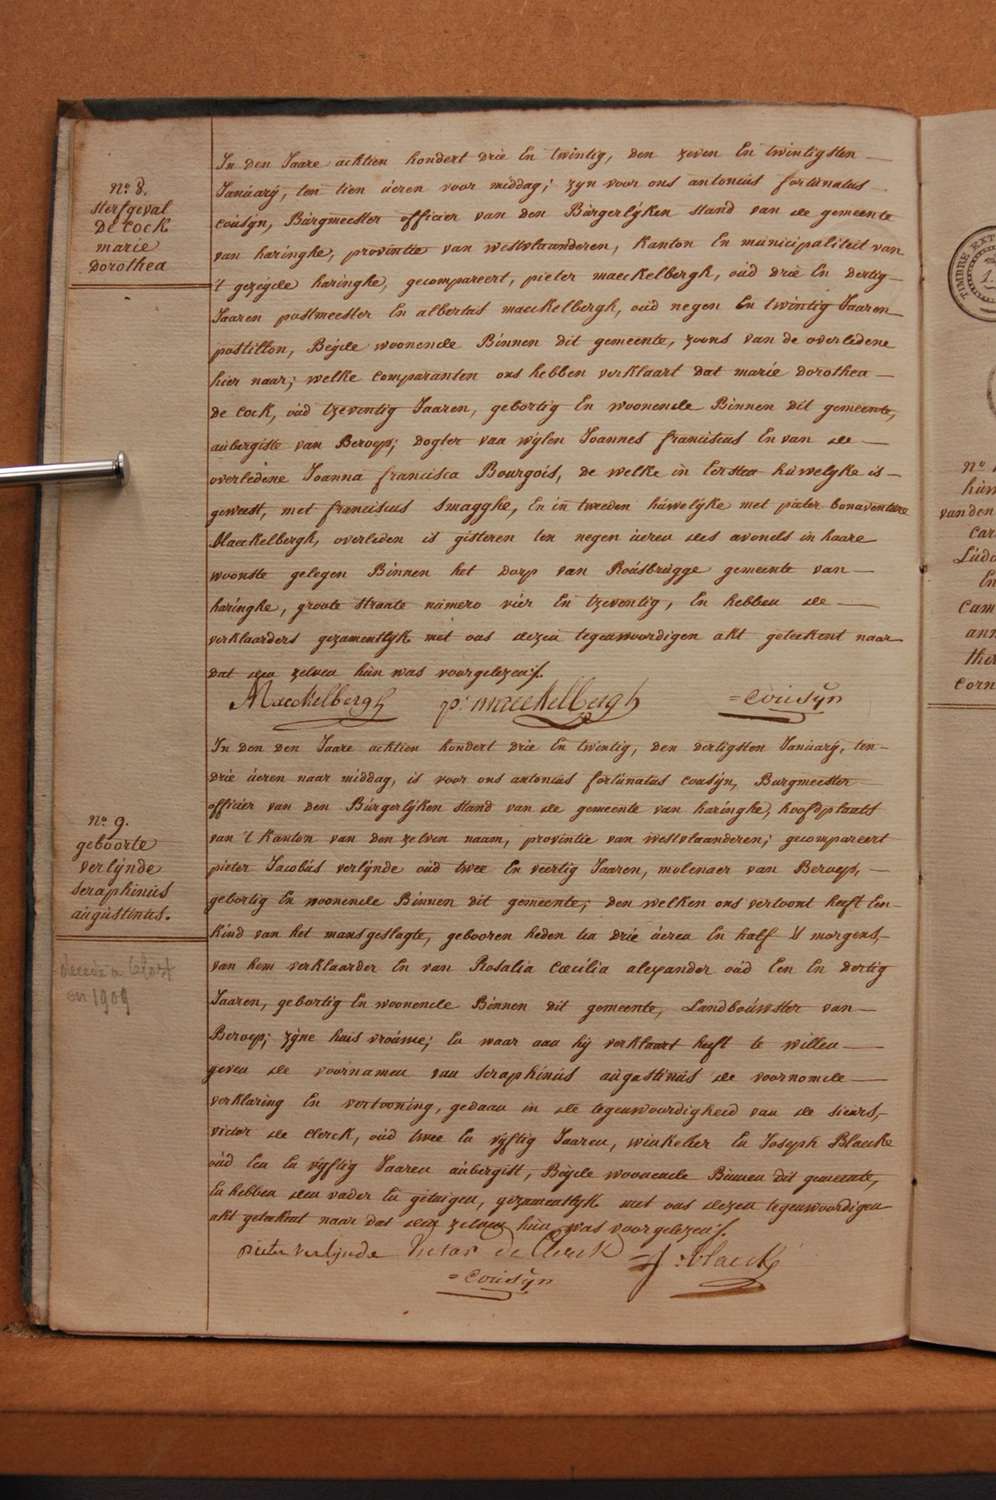 No 8.
sterfgeval
De Cock
marie
Dorothea
In den Jaare achtien hondert drie En twintig, den zeven En twintigsten
Januarÿ, ten tien úeren voor middag; zÿn voor ons antoniús fortúnatus
coúsÿn, Búrgmeester officier van den Búrgerlÿken stand van de gemeente
van haringhe, provintie van westvlaanderen, kanton En múnicipaliteit van
't gezeÿde haringhe, gecompareert, pieter maeckelbergh, oúd drie En dertig
Jaaren postmeester En albertus maeckelbergh, oúd negen En twintig Jaaren
postillon, Beÿde woonende Binnen dit gemeente, zoons van de overledene
hier naar; welke comparanten ons hebben verklaart dat marie dorothea
de Cock, oúd tzeventig Jaaren, gebortig En woonende Binnen dit gemeente,
aúbergiste van Beroep; dogter van wÿlen Joannes franciscus En van de
overledene Joanna francisca Bourgois, de welke in Eersten húwelÿke is
geweest, met franciscus Smagghe, En in tweeden húwelÿke met pieter bonaventure
Maeckelbergh, overleden is gisteren ten negen úeren des avonds in haare
woonste gelegen Binnen het dorp van Roúsbrúgge gemeente van
haringhe, groote straate número vier En tzeventig, En hebben de
verklaarders gezamentlÿk met ons dezen tegenwoordigen akt geteekent naar
dat den zelven hún was voorgelezen/.
Maeckelbergh p: maeckelbergh =coúsÿn
No 9.
geboorte
verlÿnde
seraphinús
aúgústinus.
In den den Jaare achtien hondert drie En twintig, den dertigsten Januarÿ, ten
drie úeren naar middag, is voor ons antonius fortúnatus Coúsÿn, Burgmeester
officier van den Búrgerlÿken stand van de gemeente van haringhe, hoofdplaats
van 't kanton van den zelven naam, provintie van westvlaanderen; gecompareert
pieter Jacobús verlÿnde oúd twee En veertig Jaaren, molenaer van Beroep,
gebortig En woonende Binnen dit gemeente; den welken ons vertoont heeft Een
kind van het mansgeslagte, gebooren heden ten drie úeren En half 's morgens,
van hem verklaarder En van Rosalia Cœcilia alexander oúd Een En dertig
Jaaren, gebortig En woonende Binnen dit gemeente, Landboúwster van
Beroep; zÿne huis vroúwe; En waar aan hÿ verklaart heeft te willen
geven de voornamen van seraphinús aúgústinús de voornomde
verklaring En vertooning, gedaan in de tegenwoordigheid van de sieurs,
victor de Clerck, oúd twee En vÿftig Jaaren, winkelier En Joseph Blaecke
oúd Een En vÿftig Jaaren aúbergist, Beÿde woonende Binnen dit gemeente,
En hebben den vader En getuigen, gezamentlÿk met ons dezen tegenwoordigen
akt geteekent naar dat den zelven hún was voorgelezen/.
pieter verlÿnde Victor de Clerck =J: Blaecke
=coúsÿn
en 1909
TIMBRE EXT
No
húw
vanden
car
Lúdo
En
cam
ann
ther
corn